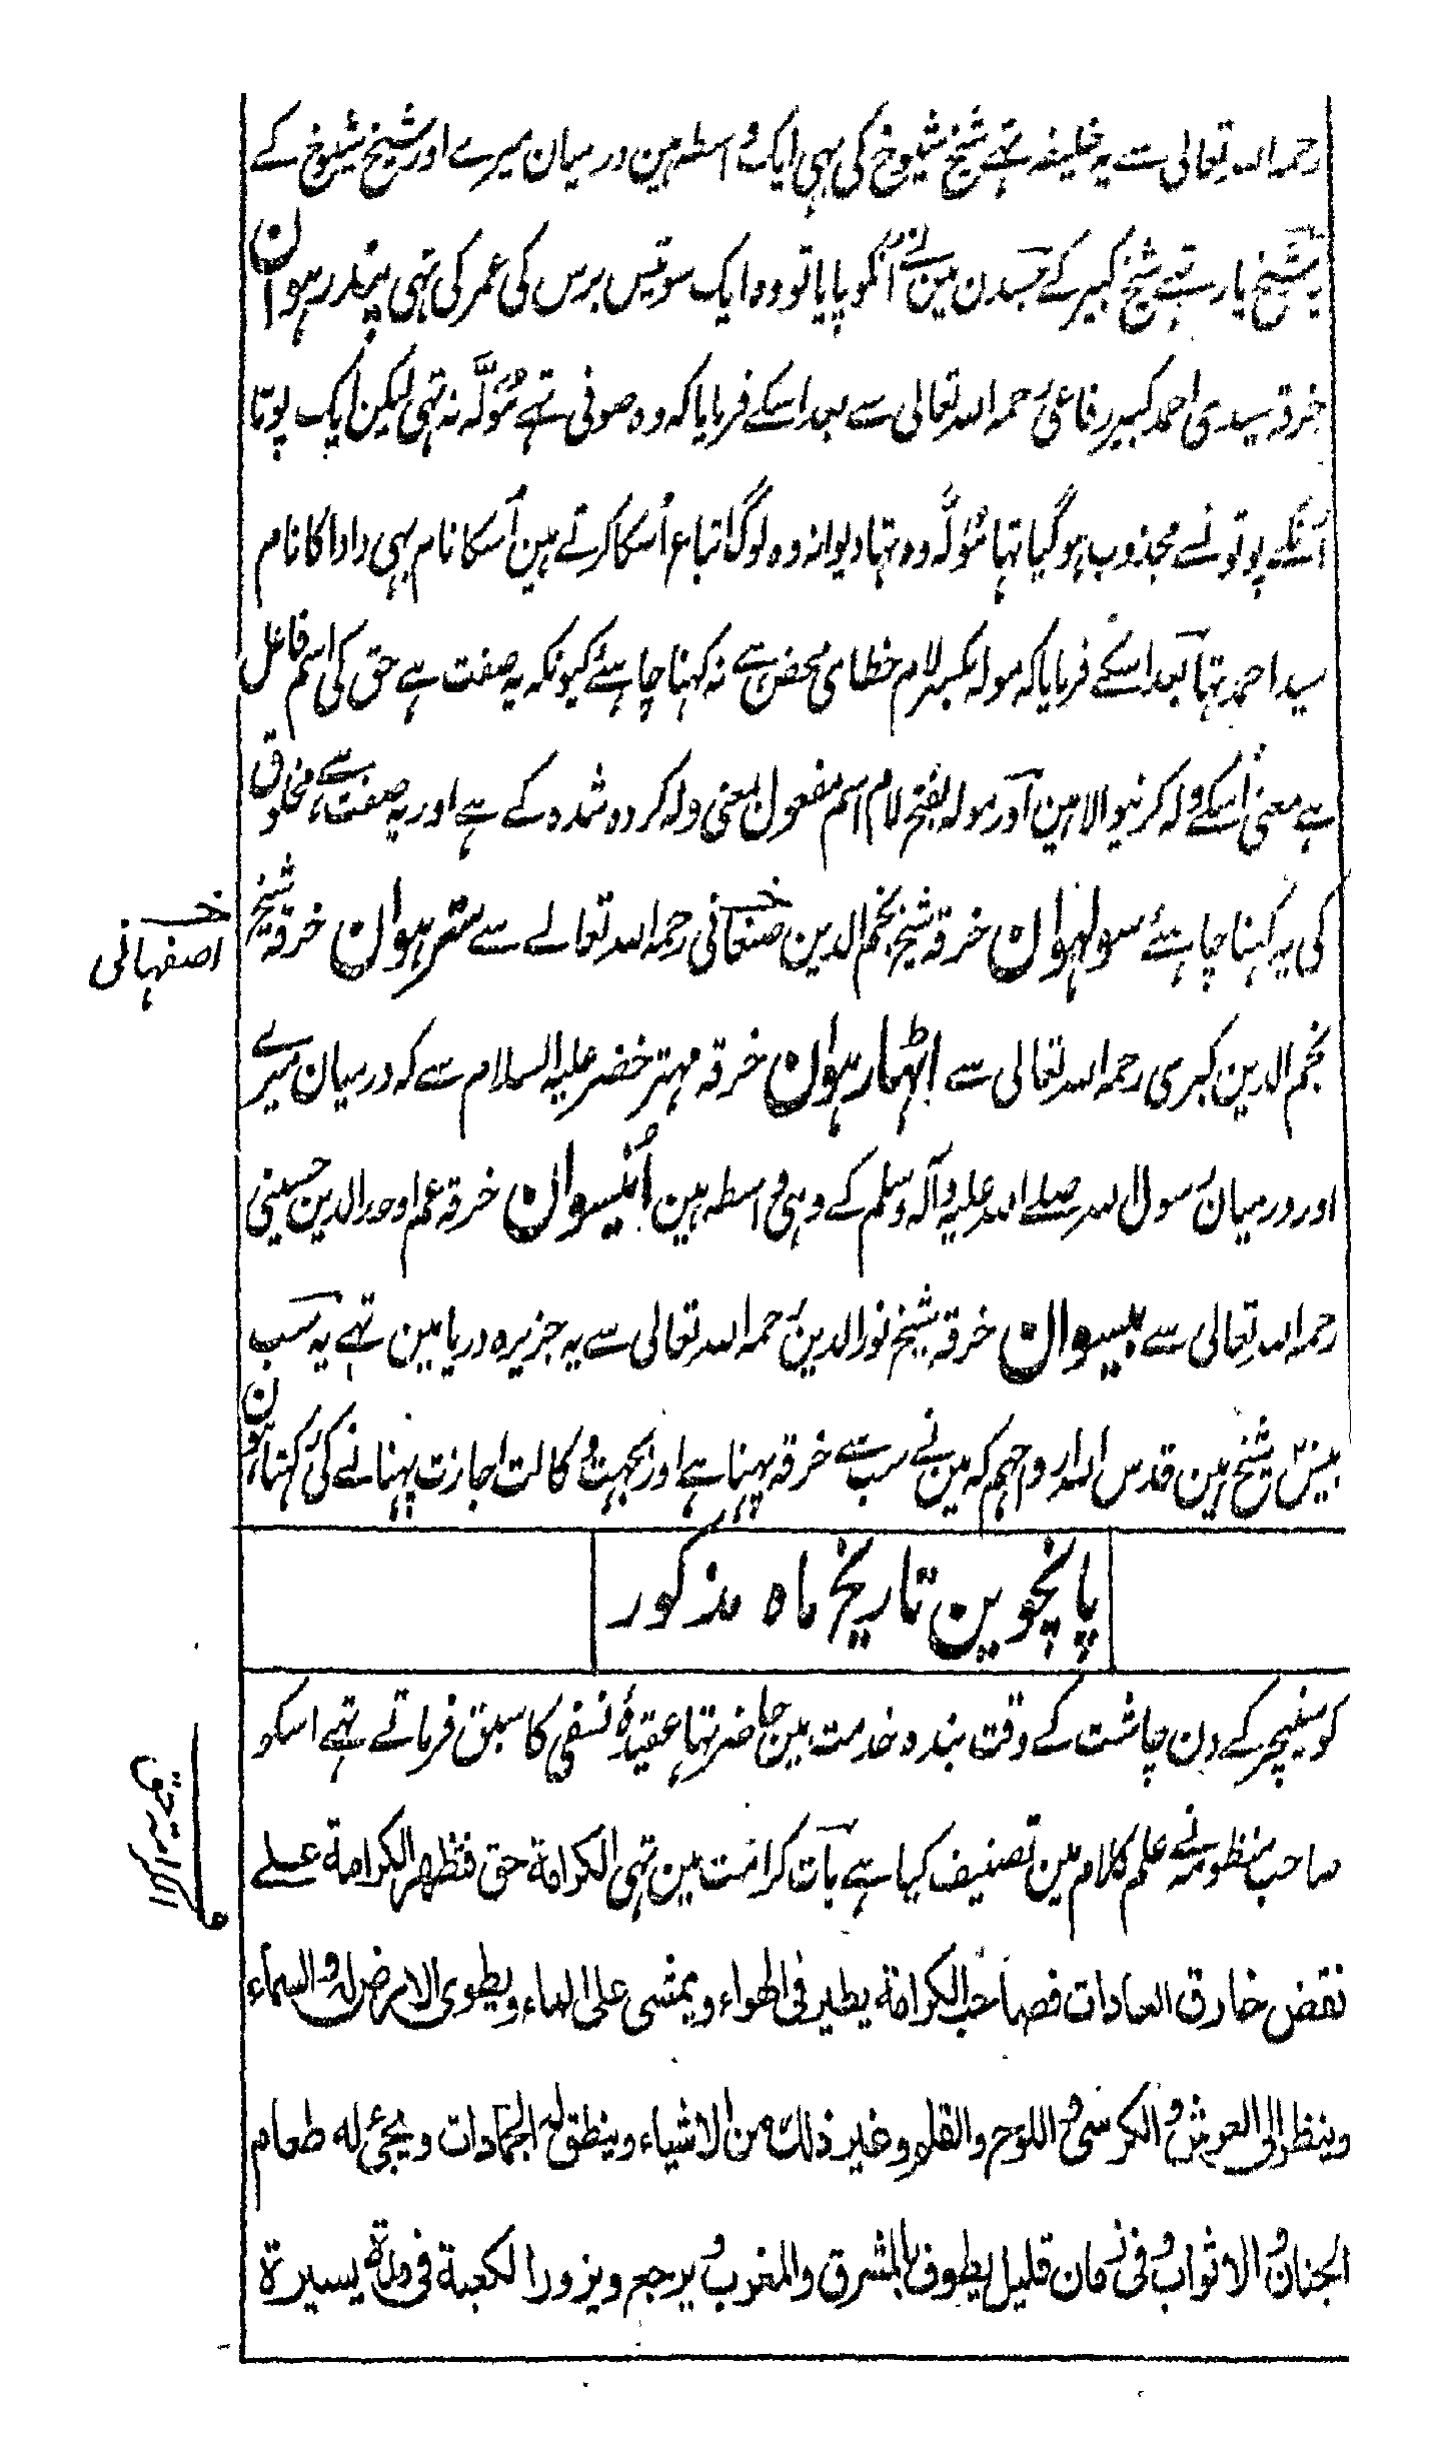 رحمہ اللہ تعالی سے یہ خلیفہ تہے شیخ شیوخ کی یہی ایک واسطہ ہین درمیان میرے اور شیخ شیوخ کے
یہ شیخ یار تہے شیخ کبیر کے جسدن مین نے اُنکو پایا تو وہ ایک سو تیس برس کی عمر کی تہی پندرہوان
خرقہ سیدی احمد کبیر رفاعی رحمہ اللہ تعالی سے بعد اسکے فرمایا کہ وہ صوفی تہے مُوَلَّہ نہ تہی لیکن ایک پوتا
اُنکے پوتونسے مجذوب ہوگیا تہا مُوَلَّہ وہ تہا دیوانہ وہ لوگ اتباع اُسکا کرتے ہین اُسکا نام یہی دادا کا نام
سید احمد تہا بعد اسکے فرمایا کہ مولہ بکسر لام خطای محض ہے نہ کہنا چاہئے کیونکہ یہ صفت ہے حق کی اسم فاعل
ہے معنی اُسکے ولہ کرنیوالا ہین اور مولہ بفتح لام اسم مفعول بمعنی ولہ کردہ شدہ کے ہے اور یہ صفت ہے مخلوق
کی یہ کہنا چاہئے سولہوان خرقہ شیخ نجم الدین صنعانی رحمہ اللہ تعالے سے سترہوان خرقہ شیخ
اصفہانی
نجم الدین کبری رحمہ اللہ تعالی سے اٹہارہوان خرقہ مہتر خضر علیہ السلام سے کہ درمیان میرے
اور درمیان رسول اللہ صلے اللہ علیہ وآلہ وسلم کے وہی واسطہ ہین اُنیسوان خرقہ عم اوحد الدین حسینی
رحمہ اللہ تعالی سے بیسوان خرقہ شیخ نور الدین رحمہ اللہ تعالی سے یہ جزیرہ دریا مین تہے یہ سب
بیس شیخ ہین قدس اللہ ارواحہم کہ مین نے سب سے خرقہ پہنا ہے اور بجہت وکالت اجازت پہنانے کی رکہتا ہون
پانچوین تاریخ ماہ مذکور
کو سنیچر کے دن چاشت کے وقت بندہ خدمت مین حاضر تہا عقیدۂ نسفی کا سبق فرماتے تہے اسکو
صاحب منظومہ نے علم کلام مین تصنیف کیا ہے بات کرامت مین تہی الکرامة حق فتظهر الکرامة علے
نقض خارق العادات فصاحب الکرامة یطیر فی الهواء ویمشی علی الماء ویطوی الارض له والسماء
وینظر الی العرش والکرسی واللوح والقلم وغیر ذلك من الاشیاء وینطق له الجمادات ویجئ له طعام
الجنان والاثواب وفی زمان قلیل یطوف بالمشرق والمغرب ویرجع ویزور الکعبة فی مدة یسیرة